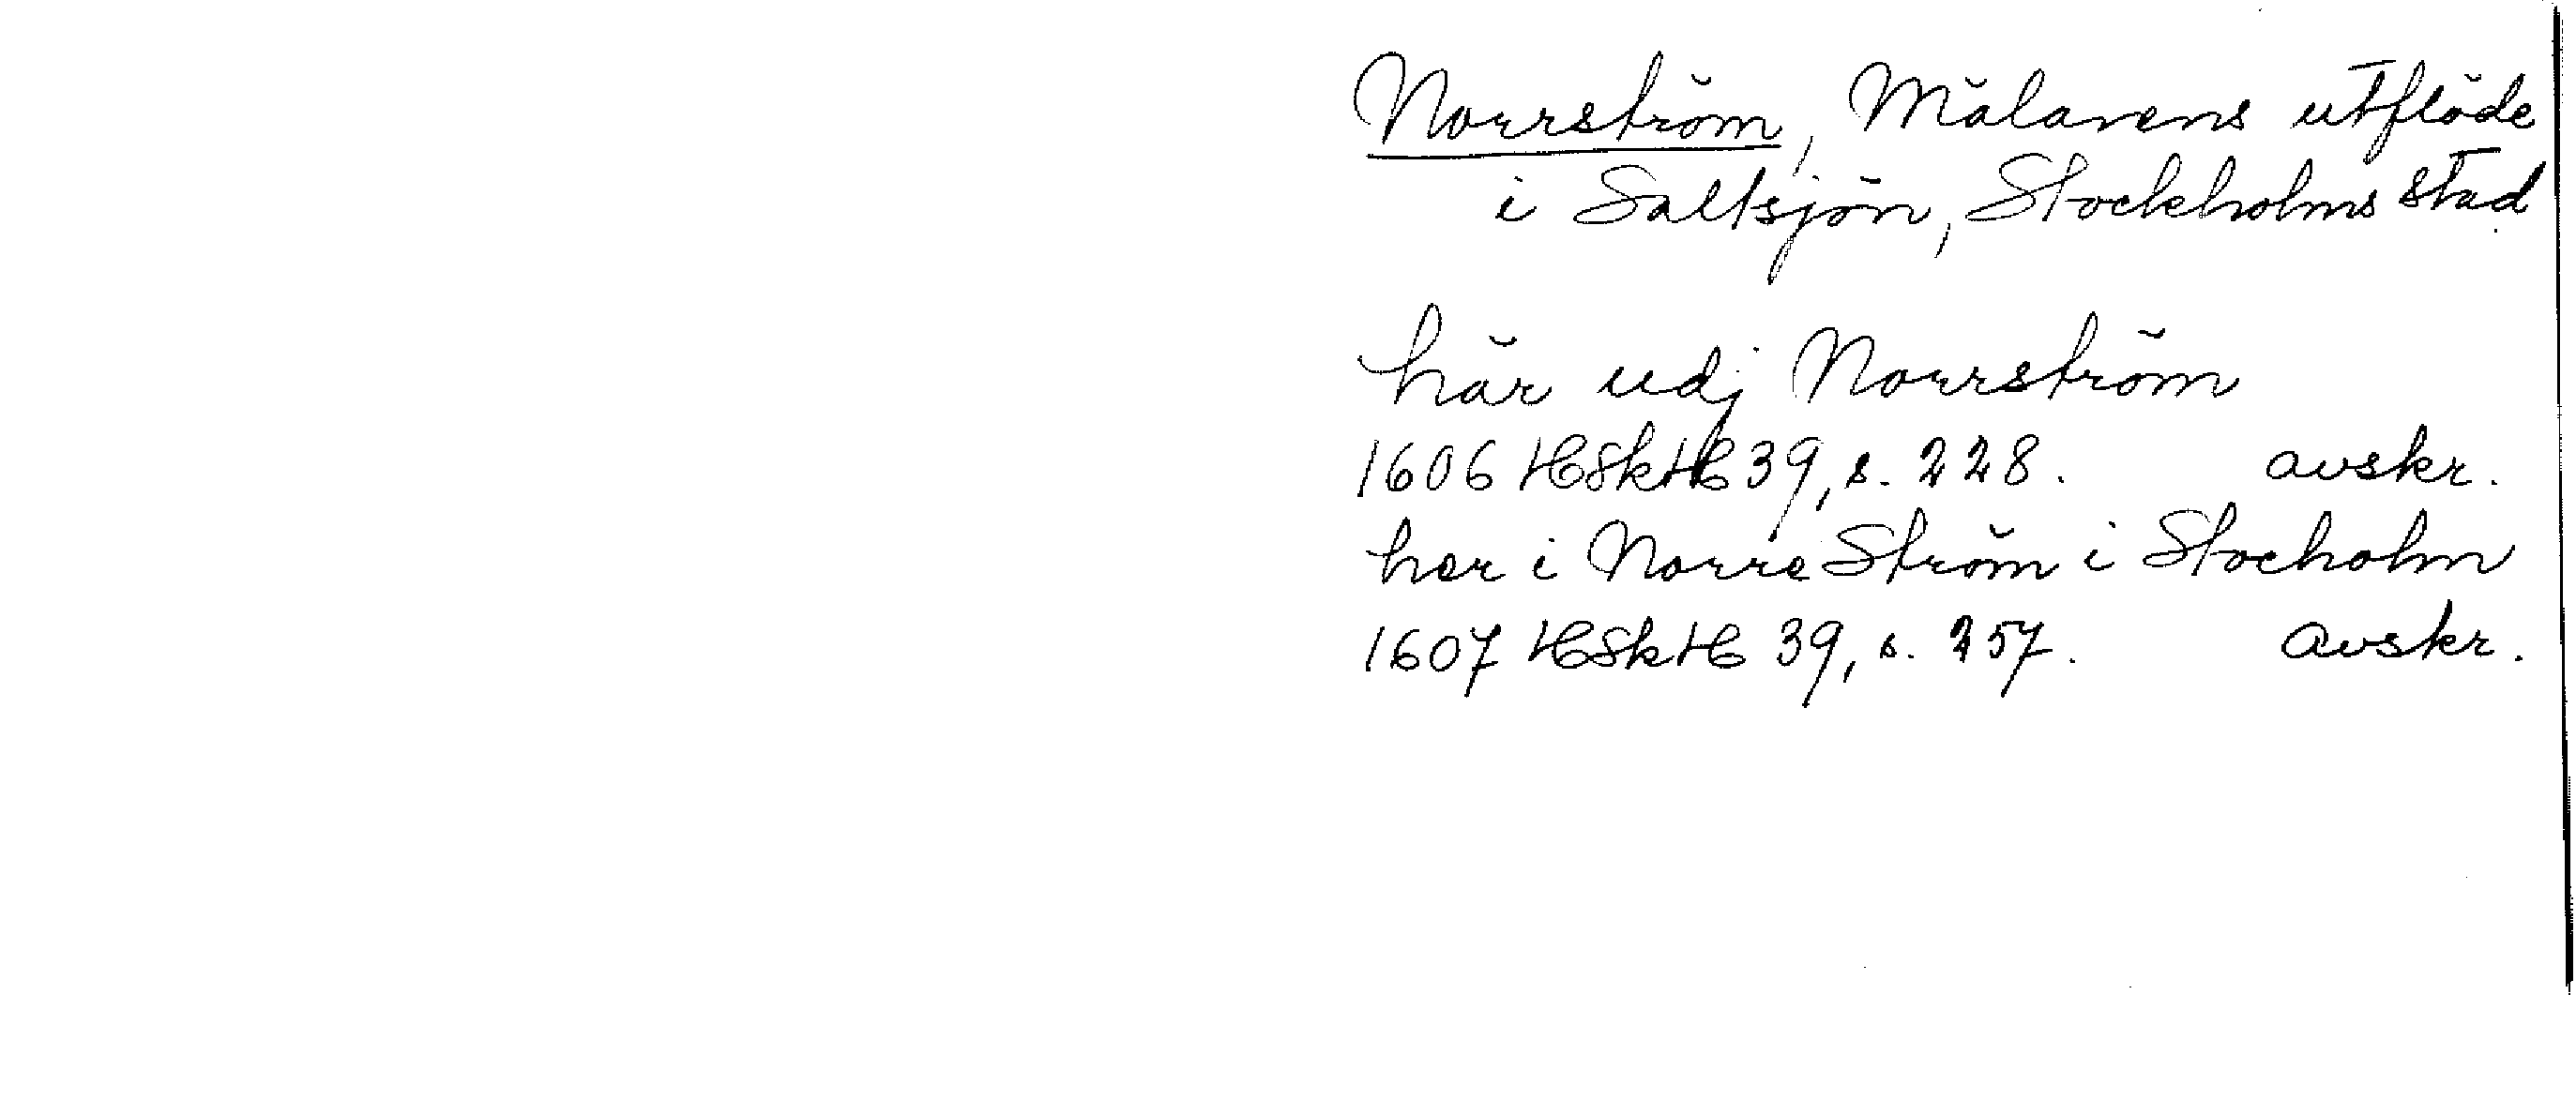 Norrström, Mälarens utflöde
i Saltsjön, Stockholms stad
här udj Norrström
1606 HSkH 39, s. 228. avskr.
her i Norre Ström i Stocholm
1607 HSkH 39, s. 257. avskr.